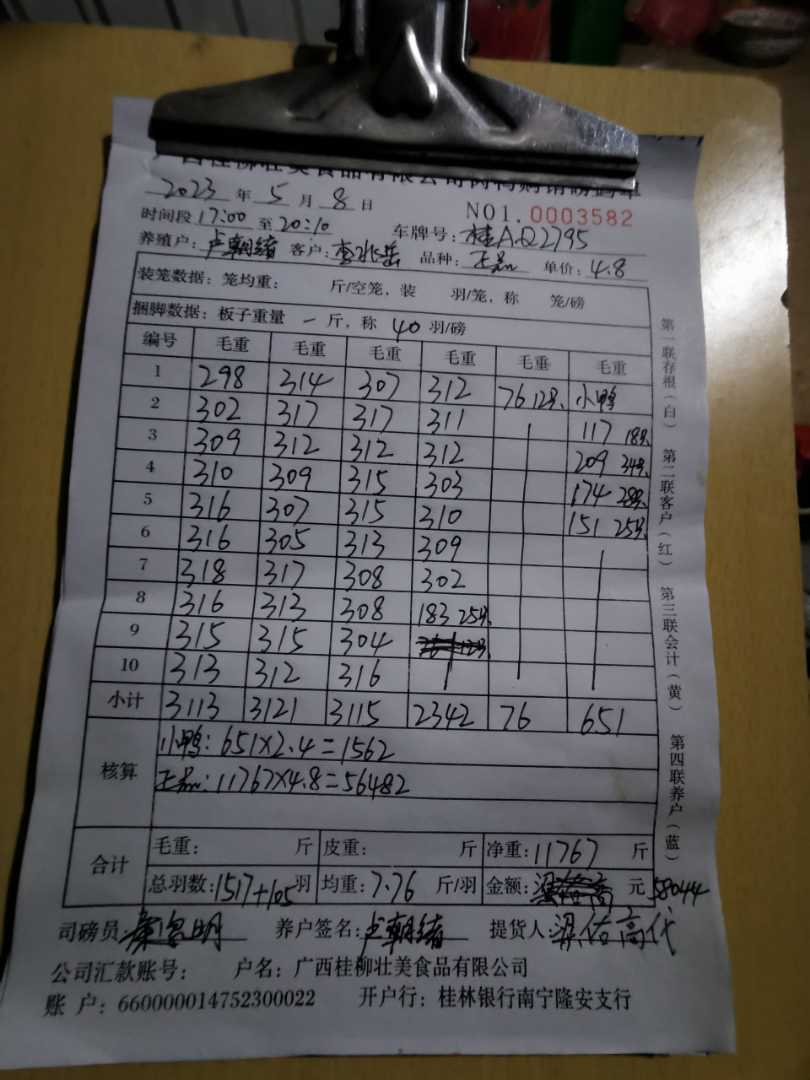 2023 年 5 月 8 日 NO1.0003582
时间段 17:00 至 20:10 车牌号: 桂A·Q2795
养殖户: 卢朝绪 客户: 李兆岳 品种: 正品 单价: 4.8
装笼数据: 笼均重: 斤/空笼, 装 羽/笼, 称 笼/磅
捆脚数据: 板子重量 一 斤, 称 40 羽/磅
编号 毛重 毛重 毛重 毛重 毛重 毛重
1 298 314 307 312 76 12只 小鸭
2 302 317 317 311 117 18只
3 309 312 312 312 209 34只
4 310 309 315 303 174 28只
5 316 307 315 310 151 25只
6 316 305 313 309
7 318 317 308 302
8 316 313 308 183 25只
9 315 315 304
10 313 312 316
小计 3113 3121 3115 2342 76 651
核算 小鸭: 651×2.4=1562
正品: 11767×4.8=56482
合计 毛重: 斤 皮重: 斤 净重: 11767 斤
总羽数: 1517+105 羽 均重: 7.76 斤/羽 金额: 元 58044
司磅员: 养户签名: 卢朝绪 提货人: 梁佑高代
公司汇款账号: 户名: 广西桂柳壮美食品有限公司
账 户: 660000014752300022 开户行: 桂林银行南宁隆安支行
第一联存根(白) 第二联客户(红) 第三联会计(黄) 第四联养户(蓝)